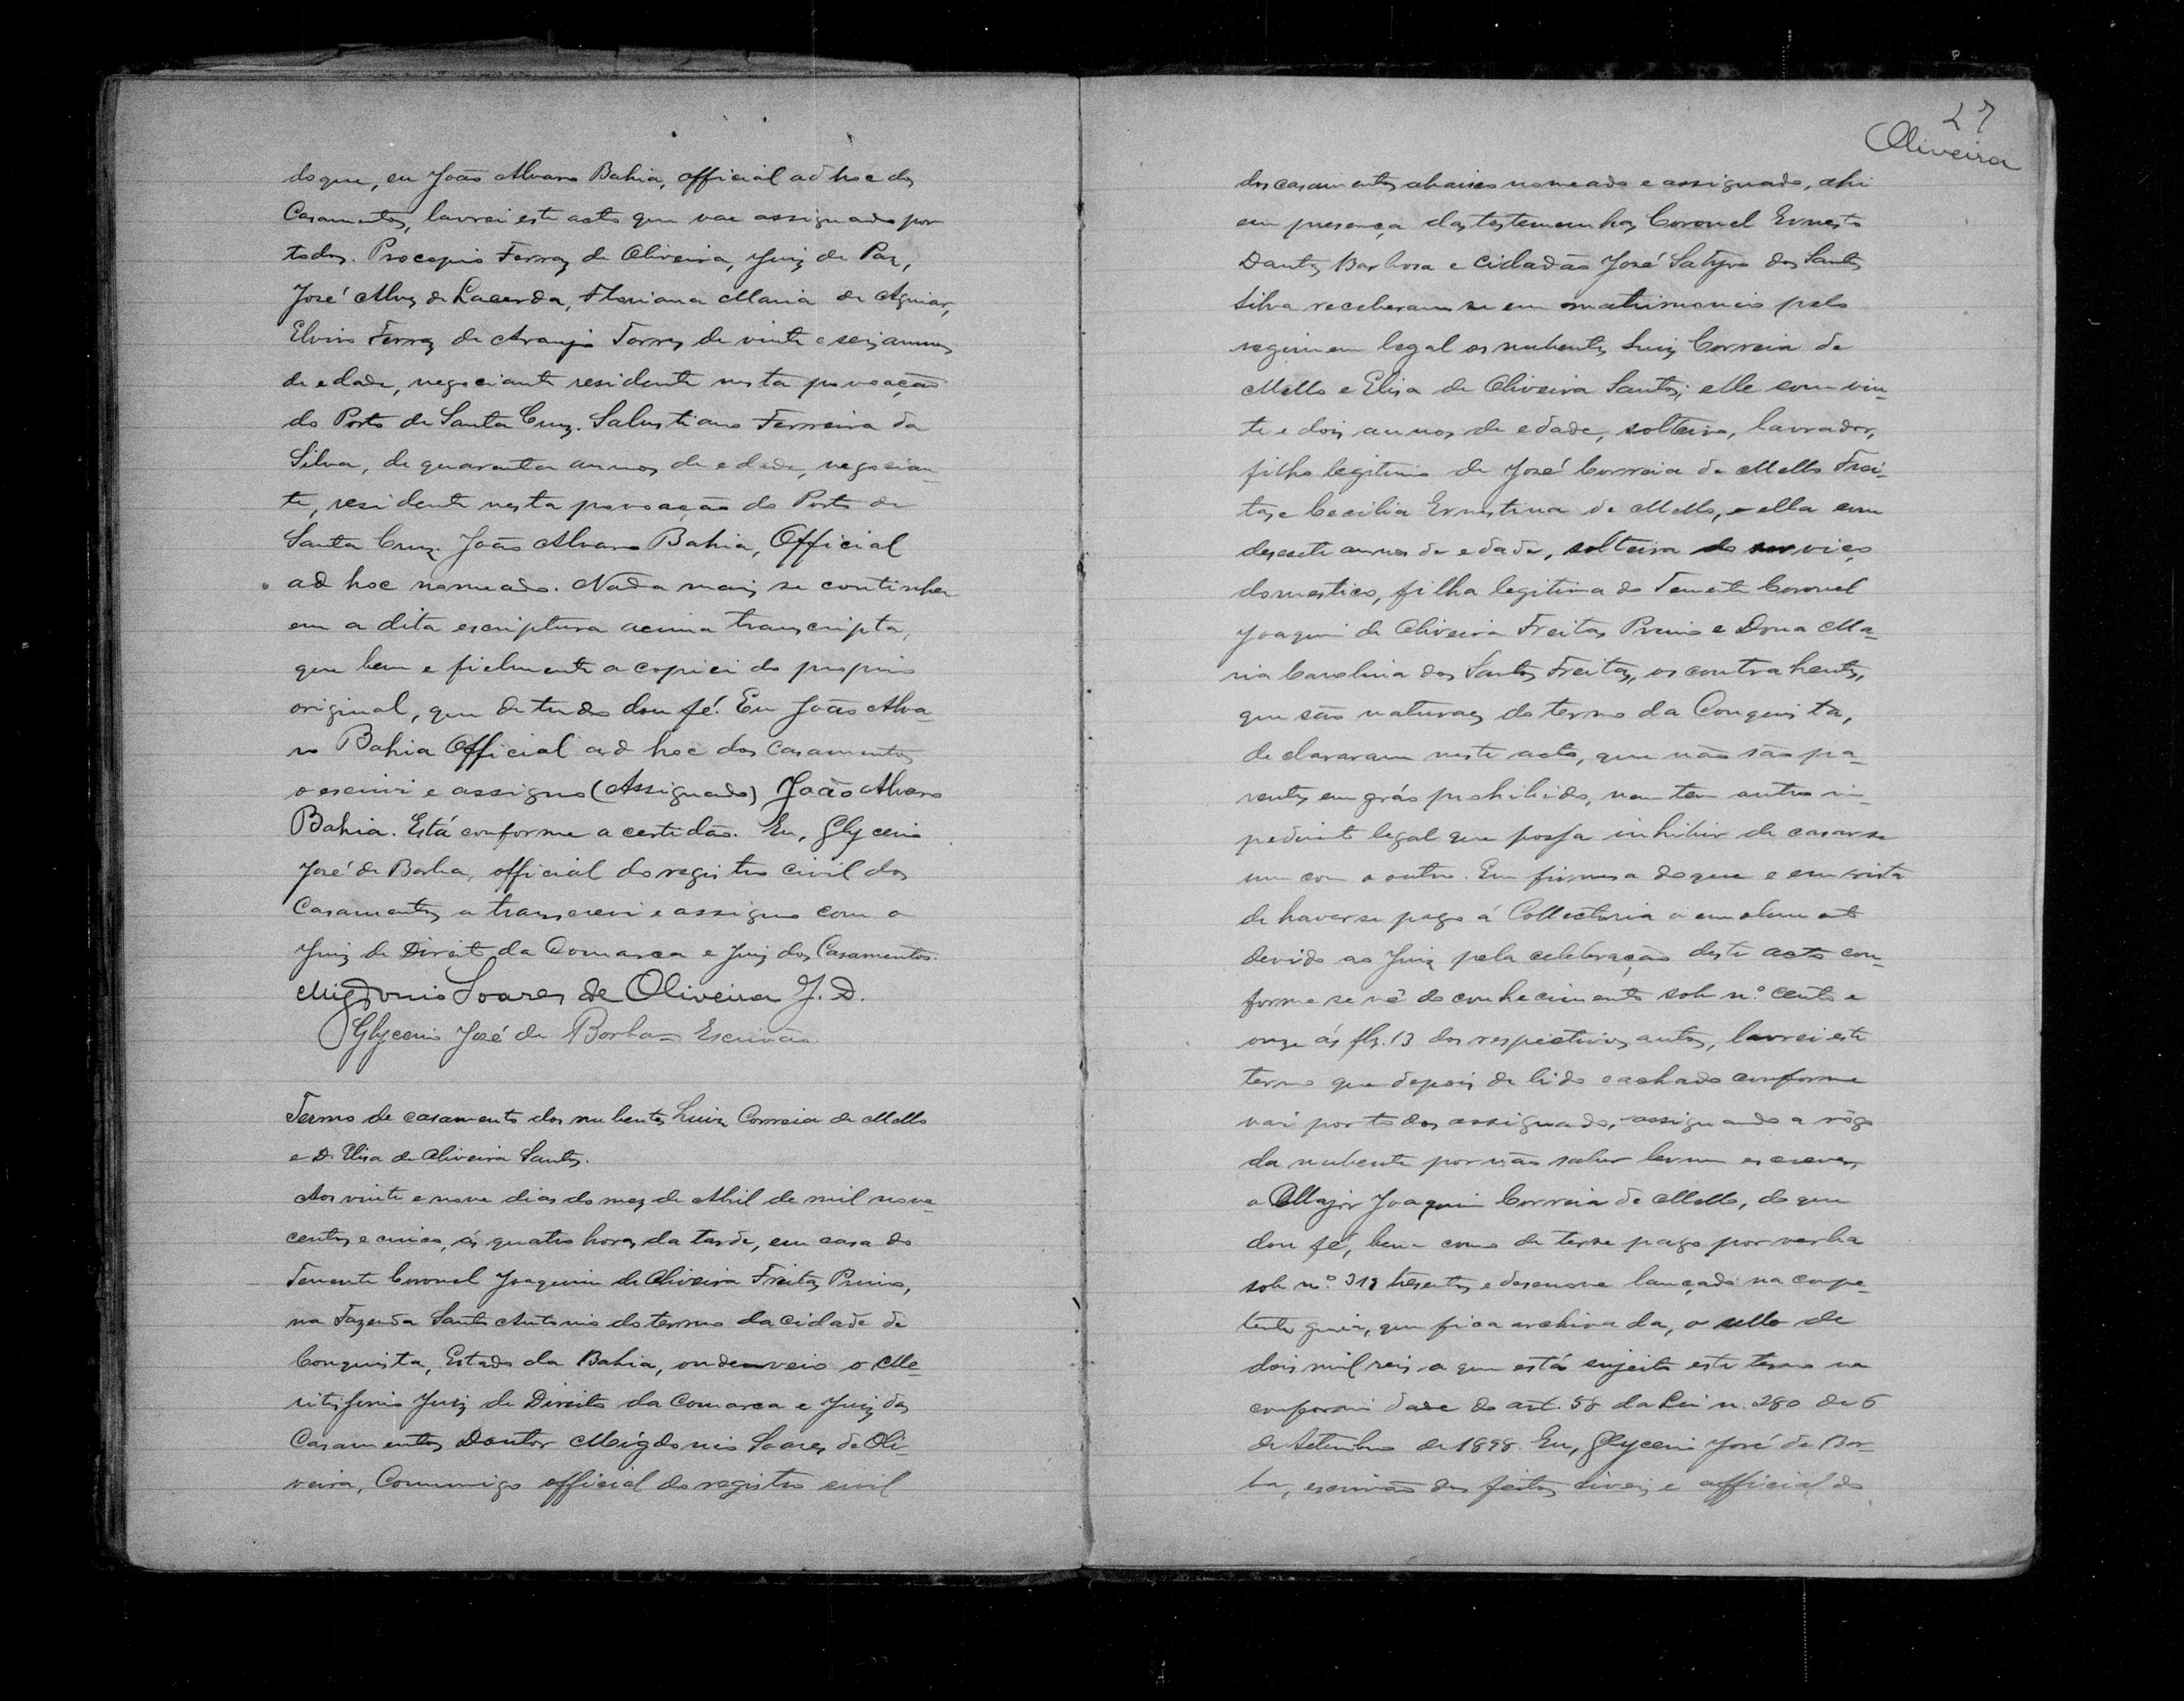 doque, eu João Alvaro Bahia, official ad hoc dos
Casamentos, lavrei este acto que vae assignado por
todos. Procopio Ferraz de Oliveira, Juiz de Paz,
José Alves de Lacerda, Floriana Maria de Aguiar,
Elvino Ferraz de Araujo Torres de vinte e seis annos
de edade, negociante residente nesta povoação
do Porto de Santa Cruz. Salustiano Ferreira da
Silva, de quarenta annos de edade, negocian-
te, residente nesta povoação do Porto de
Santa Cruz. João Alvaro Bahia, Official
ad hoc nomeado. Nada mais se continha
em a dita escriptura acima transcripta,
que bem e fielmente a copiei do proprio
original, que de tudo dou fé. Eu João Alva-
ro Bahia Official ad hoc dos Casamentos
o escrivi e assigno (Assignado) João Alvaro
Bahia. Está conforme a certidão. Eu, Glycerio
José de Borba, official do registro civil dos
Casamentos a transcrevi e assigno com o
Juiz de Direito da Comarca e Juiz dos Casamentos.
Migdonio Soares de Oliveira J. D.
Glycerio José de Borba Escrivão
Termo de casamento dos nubentes Luiz Correia de Mello
e D. Elisa de Oliveira Santos.
Aos vinte e nove dias do mez de Abril de mil nove-
centos e cinco, ás quatro horas da tarde, em casa do
Tenente Coronel Joaquim de Oliveira Freitas Primo,
na Fazenda Santo Antonio do termo da cidade de
Conquista, Estado da Bahia, onde veio o Me-
ritissimo Juiz de Direito da Comarca e Juiz dos
Casamentos Doutor Migdonio Soares de Oli-
veira, Commigo official do registro civil
27
Oliveira
dos casamentos abaixo nomeado e assignado, ahi
em presença das testemunhas Coronel Ernesto
Dantas Barbosa e Cidadão José Satyro dos Santos
Silva receberam se em matrimonio pelo
regimem legal os nubentes Luiz Correia de
Mello e Elisa de Oliveira Santos; elle com vin-
te e dois annos de edade, solteiro, lavrador,
filho legitimo de José Correia de Mello Frei-
tas e Cecilia Ernestina de Mello, e ella com
desesete annos de edade, solteira do serviço
domestico, filha legitima do Tenente Coronel
Joaquim de Oliveira Freitas Primo e Dona Ma-
ria Carolina dos Santos Freitas, os contrahentes,
que são naturaes do termo da Conquista,
declararam neste acto, que não são pa-
rentes em gráo prohibido, nem tem outro im-
pedimto legal que possa inhibir de casar se
um com o outro. Em firmesa doque e em vista
de haver se pago á Collectoria o emolumento
devido ao Juiz pela celebração deste acto con-
forme se vê do conhecimento sob n.º cento e
onze ás fls. 13 dos respectivos autos, lavrei este
termo que depois de lido e achado conforme
vai por todos assignado, assignando a rôgo
da nubente por não saber ler nem escrever,
o Major Joaquim Correia de Mello, do que
dou fé, bem como de ter se pago por verba
sob n.º 319 tresentos e desenove lançado na compe-
tente guia, que fica archivada, o sello de
dois mil reis a que está sujeito este termo na
conformidade do art. 58 da Lei n. 280 de 6
de Setembro de 1898. Eu, Glycerio José de Bor-
ba, escrivão dos feitos civeis e official do